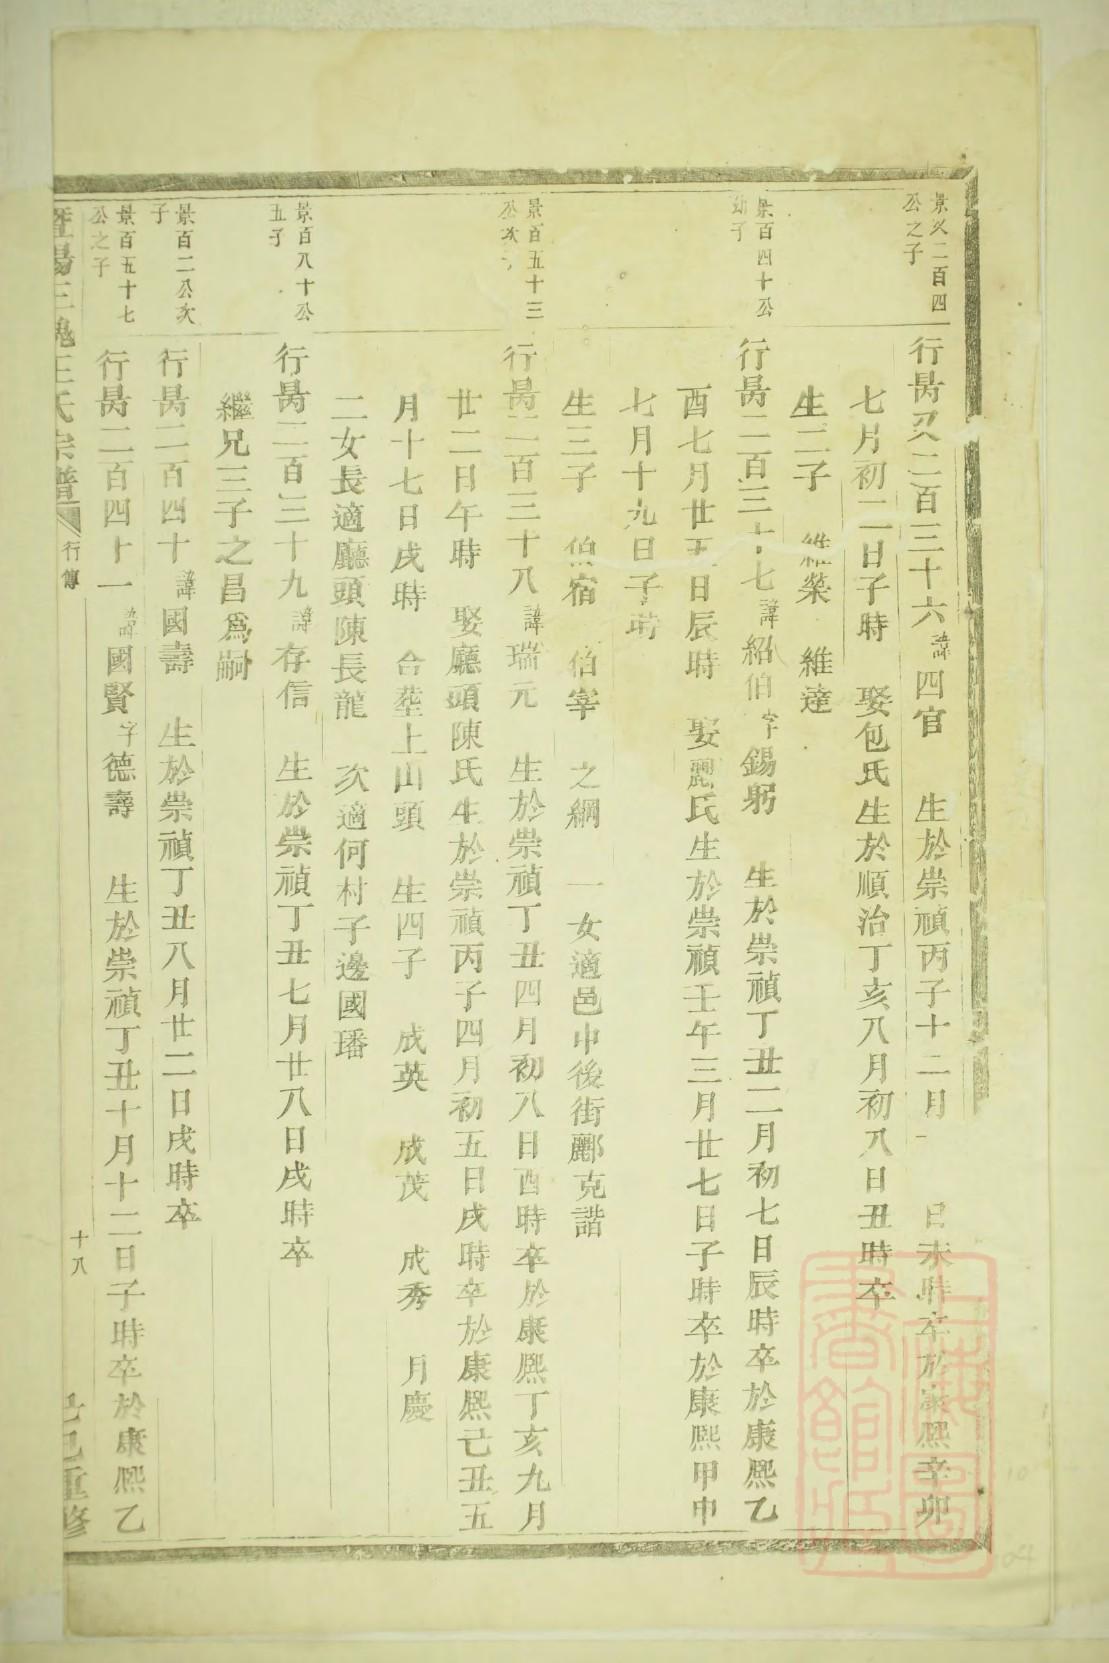 景又二百四
公之子
行昺又二百三十六諱四官　生於崇禎丙子十二月　日未時卒於康熙辛卯
七月初二日子時　娶包氏生於順治丁亥八月初八日丑時卒
生二子　維榮　維達
景百四十公
幼子
行昺二百三十七諱紹伯字錫躬　生於崇禎丁丑二月初七日辰時卒於康熙乙
酉七月廿五日辰時　娶酈氏生於崇禎壬午三月廿七日子時卒於康熙甲申
七月十九日子時
生三子　伯宿　伯宰　之綱　一女適邑中後街酈克諧
景百五十三
公次
行昺二百三十八諱瑞元　生於崇禎丁丑四月初八日酉時卒於康熙丁亥九月
廿二日午時　娶廳頭陳氏生於崇禎丙子四月初五日戌時卒於康熙己丑五
月十七日戌時　合塟上山頭　生四子　成英　成茂　成秀　月慶
二女長適廳頭陳長龍　次適何村子邊國璠
景百八十公
五子
行昺二百三十九諱存信　生於崇禎丁丑七月廿八日戌時卒
繼兄三子之昌爲嗣
景百二公次
子
行昺二百四十諱國壽　生於崇禎丁丑八月廿二日戌時卒
景百五十七
公之子
行昺二百四十一諱國賢字德壽　生於崇禎丁丑十月十二日子時卒於康熙乙
暨陽三槐王氏宗譜　行傳　十八　己巳重修
上海圖
書館藏